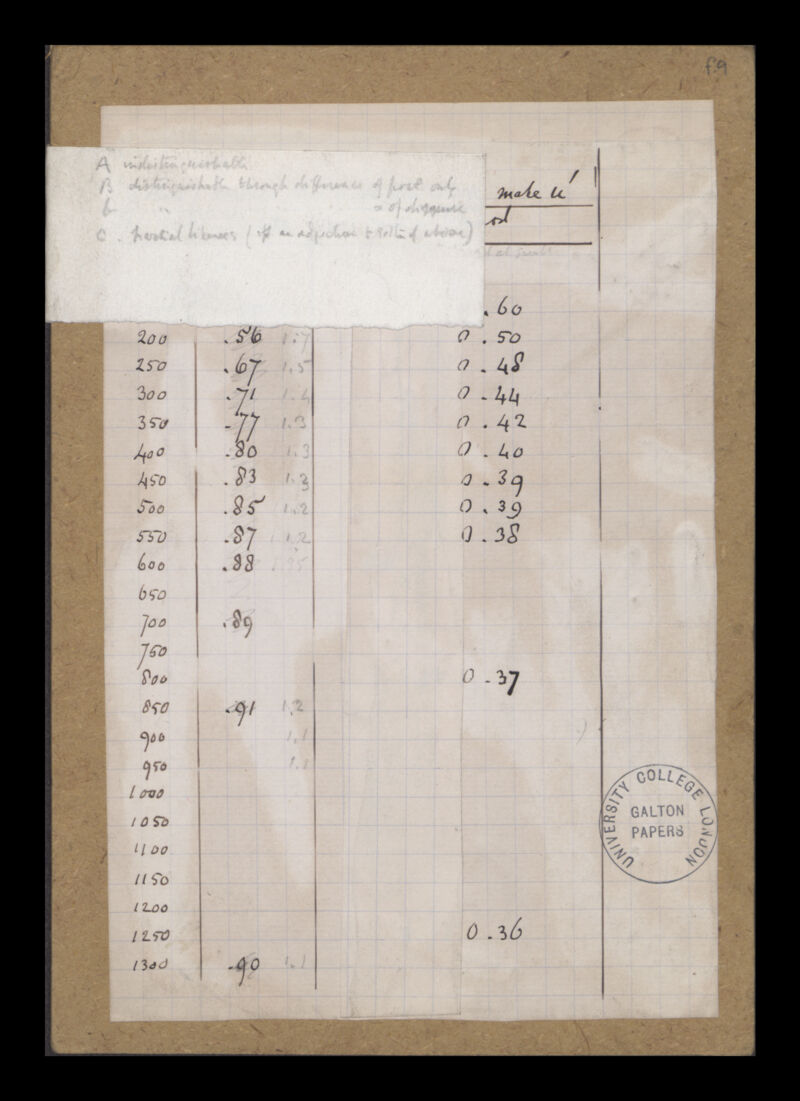 f.9
A indistinguishable
B distinguishable through difference of pose only
b " " " of disguise
C. Partial likeness ( an adjective to both of above)
make u'
od
.60
200 .56 1.7 0.50
250 .67 1.5 0.48
300 .71 1.4 0.44
350 .77 1.3 0.42
400 .80 1.3 0.40
450 .83 1.3 0.39
500 .85 1.2 0.39
550 .87 1.2 0.38
600 .88
650
700 .89
750
800 0.37
850 .91 1.2
900 1.1
950 1.1
1000
1050
1100
1150
1200
1250 0.36
1300 .90 1.1
UNIVERSITY COLLEGE LONDON
GALTON
PAPERS